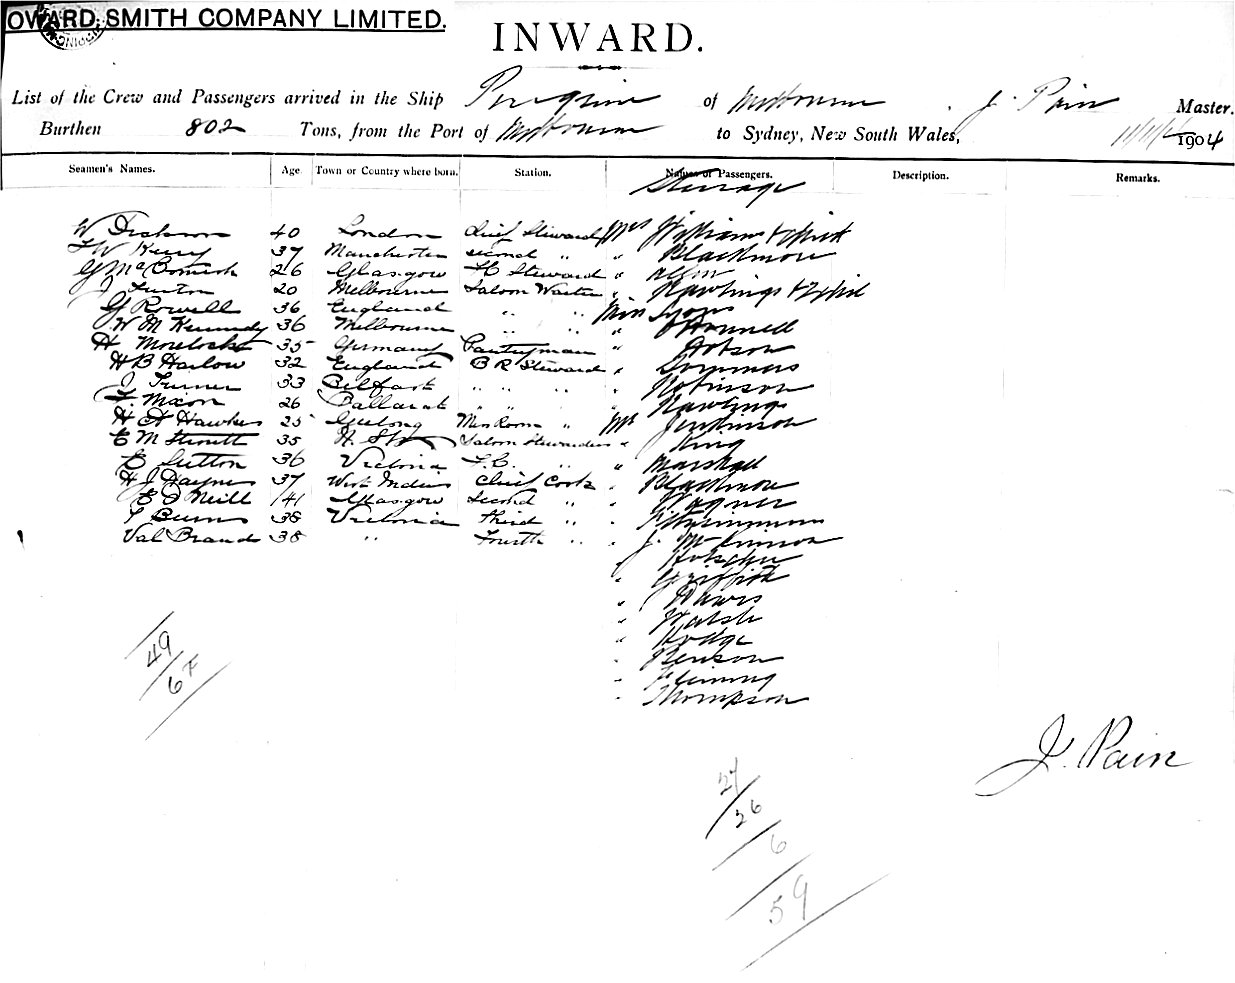 OWARD SMITH COMPANY LIMITED.
INWARD.
List of the Crew and Passengers arrived in the Ship Peregrine of Melbourne J. Pain Master.
Burthen 802 Tons, from the Port of Melbourne to Sydney, New South Wales, 1904
Seamen's Names. Age Town or Country where born. Station. Names of Passengers. Description. Remarks.
Steerage
W Dickson 40 London Chief Steward Mrs Williams & Child
Kerry 37 Manchester second " " Blackmore
G McCormick 26 Glasgow F C Steward " Allen
J Fenton 20 Melbourne Saloon Waiter " Rawlings & Child
G Rowell 36 England " " Miss Lyons
W M Kennedy 36 Melbourne " " " O'Donnell
H 35 Germany Pantryman " Dobson
H B Harlow 32 England B R Steward " Sommers
J Turner 33 Belfast " " " " Robinson
F Mixon 26 Ballarat " " " " Rawlings
H A Hawkes 25 Geelong Mess Room " Mr Jenkinson
E M 35 Saloon Stewardess " King
E Sutton 36 Victoria F.C. " " Marshall
H J Haynes 37 West Indies Chief Cook " Blackmore
E O'Neill 41 Glasgow Second " " Wagner
Burns 38 Victoria third " " Fitzsimmons
Val Brand 38 " Fourth " " J. McKinnon
"
" Griffith
" Dawes
" Walsh
" Hodge
" Benson
" Fleming
" Thompson
49
6 F
J. Pain
27
26
6
59